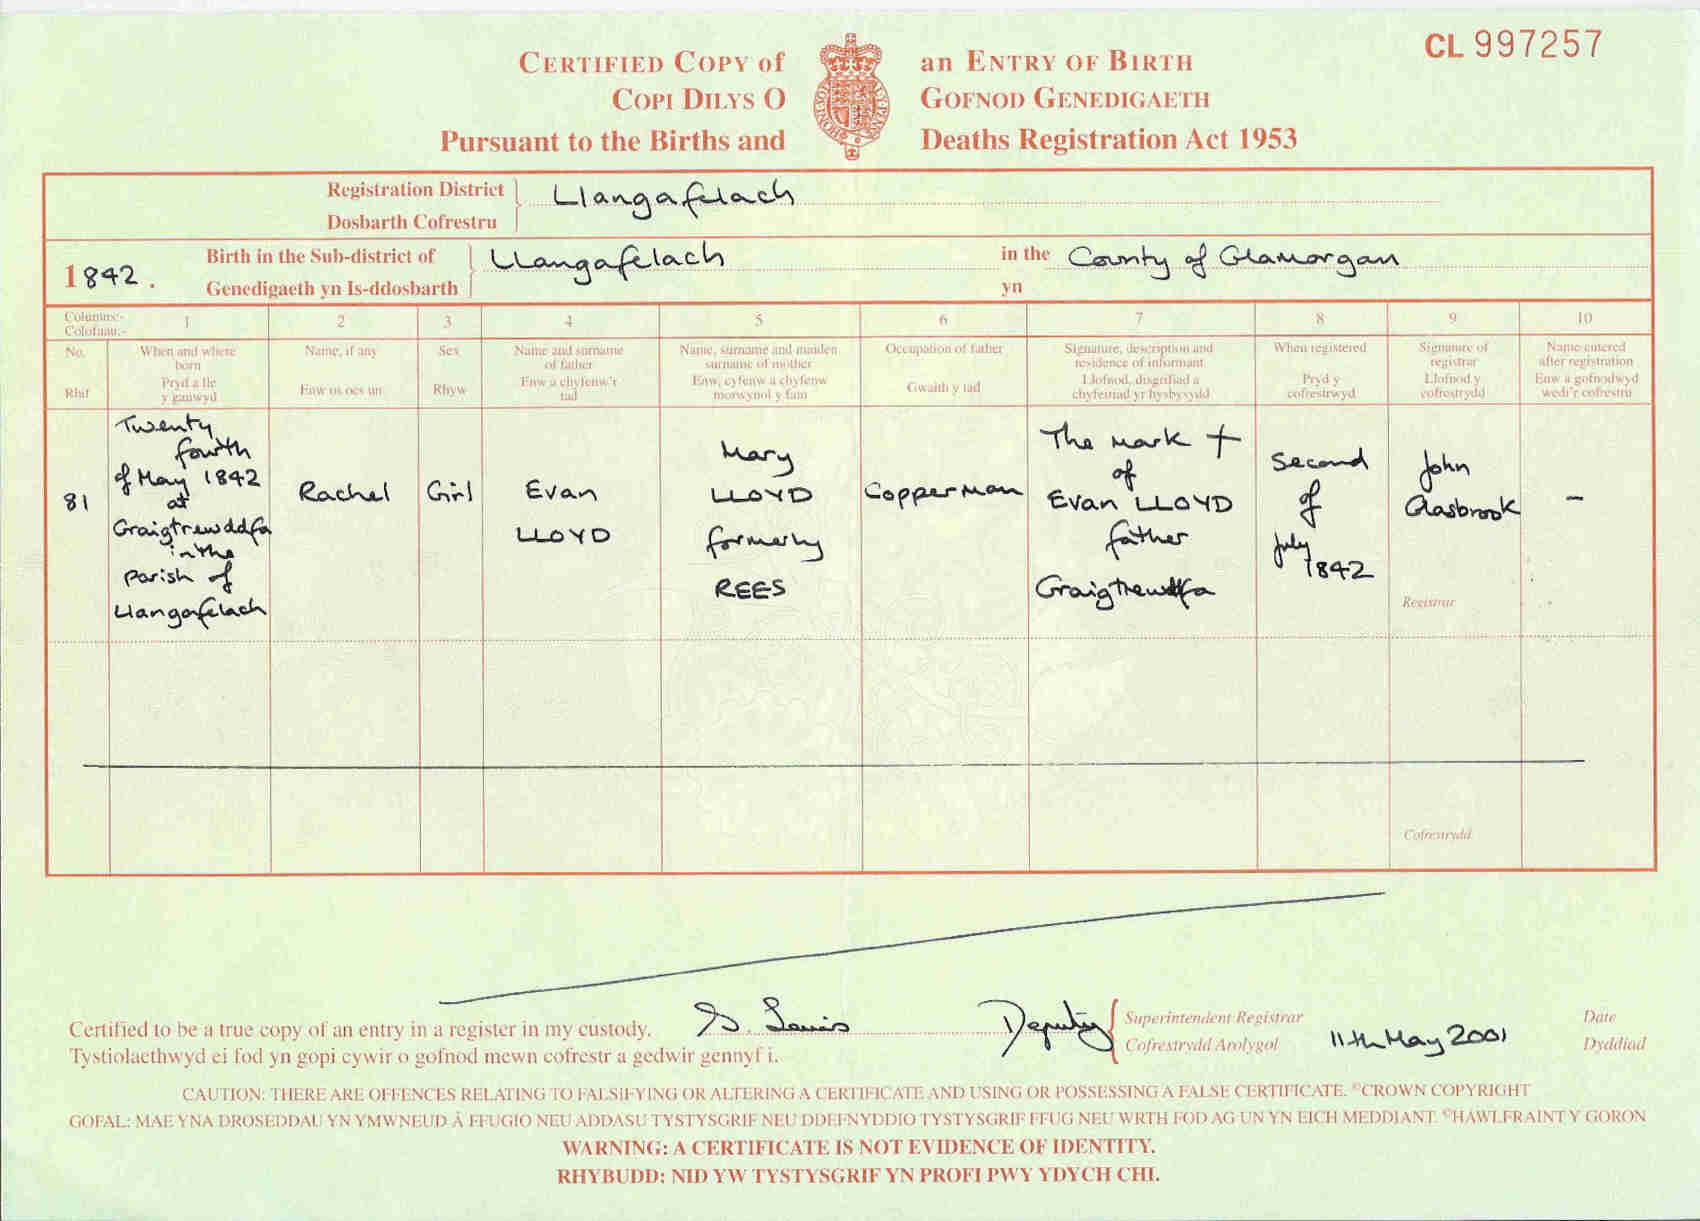 CL 997257
CERTIFIED COPY of an ENTRY OF BIRTH
COPI DILYS O GOFNOD GENEDIGAETH
Pursuant to the Births and Deaths Registration Act 1953
Registration District Llangafelach
Dosbarth Cofrestru
1842. Birth in the Sub-district of Llangafelach in the County of Glamorgan
Genedigaeth yn Is-ddosbarth yn
Columns:- 1 2 3 4 5 6 7 8 9 10
Colofnau:-
No. When and where born Name, if any Sex Name and surname of father Name, surname and maiden surname of mother Occupation of father Signature, description and residence of informant When registered Signature of registrar Name entered after registration
Rhif Pryd a lle y ganwyd Enw os oes un Rhyw Enw a chyfenw'r tad Enw, cyfenw a chyfenw morwynol y fam Gwaith y tad Llofnod, disgrifiad a chyfeiriad yr hysbysydd Pryd y cofrestrwyd Llofnod y cofrestrydd Enw a gofnodwyd wedi'r cofrestru
81
Twenty
fourth
of May 1842
at
Graigtrewddfa
in the
parish of
Llangafelach
Rachel
Girl
Evan
LLOYD
Mary
LLOYD
formerly
REES
Copperman
The mark +
of
Evan LLOYD
father
Graigtrewddfa
Second
of
July
1842
John
Glasbrook
Registrar
-
Cofrestrydd
Certified to be a true copy of an entry in a register in my custody. Lewis Deputy Superintendent Registrar 11th May 2001 Date
Tystiolaethwyd ei fod yn gopi cywir o gofnod mewn cofrestr a gedwir gennyf i. Cofrestrydd Arolygol Dyddiad
CAUTION: THERE ARE OFFENCES RELATING TO FALSIFYING OR ALTERING A CERTIFICATE AND USING OR POSSESSING A FALSE CERTIFICATE. ©CROWN COPYRIGHT
GOFAL: MAE YNA DROSEDDAU YN YMWNEUD Â FFUGIO NEU ADDASU TYSTYSGRIF NEU DDEFNYDDIO TYSTYSGRIF FFUG NEU WRTH FOD AG UN YN EICH MEDDIANT. ©HAWLFRAINT Y GORON
WARNING: A CERTIFICATE IS NOT EVIDENCE OF IDENTITY.
RHYBUDD: NID YW TYSTYSGRIF YN PROFI PWY YDYCH CHI.